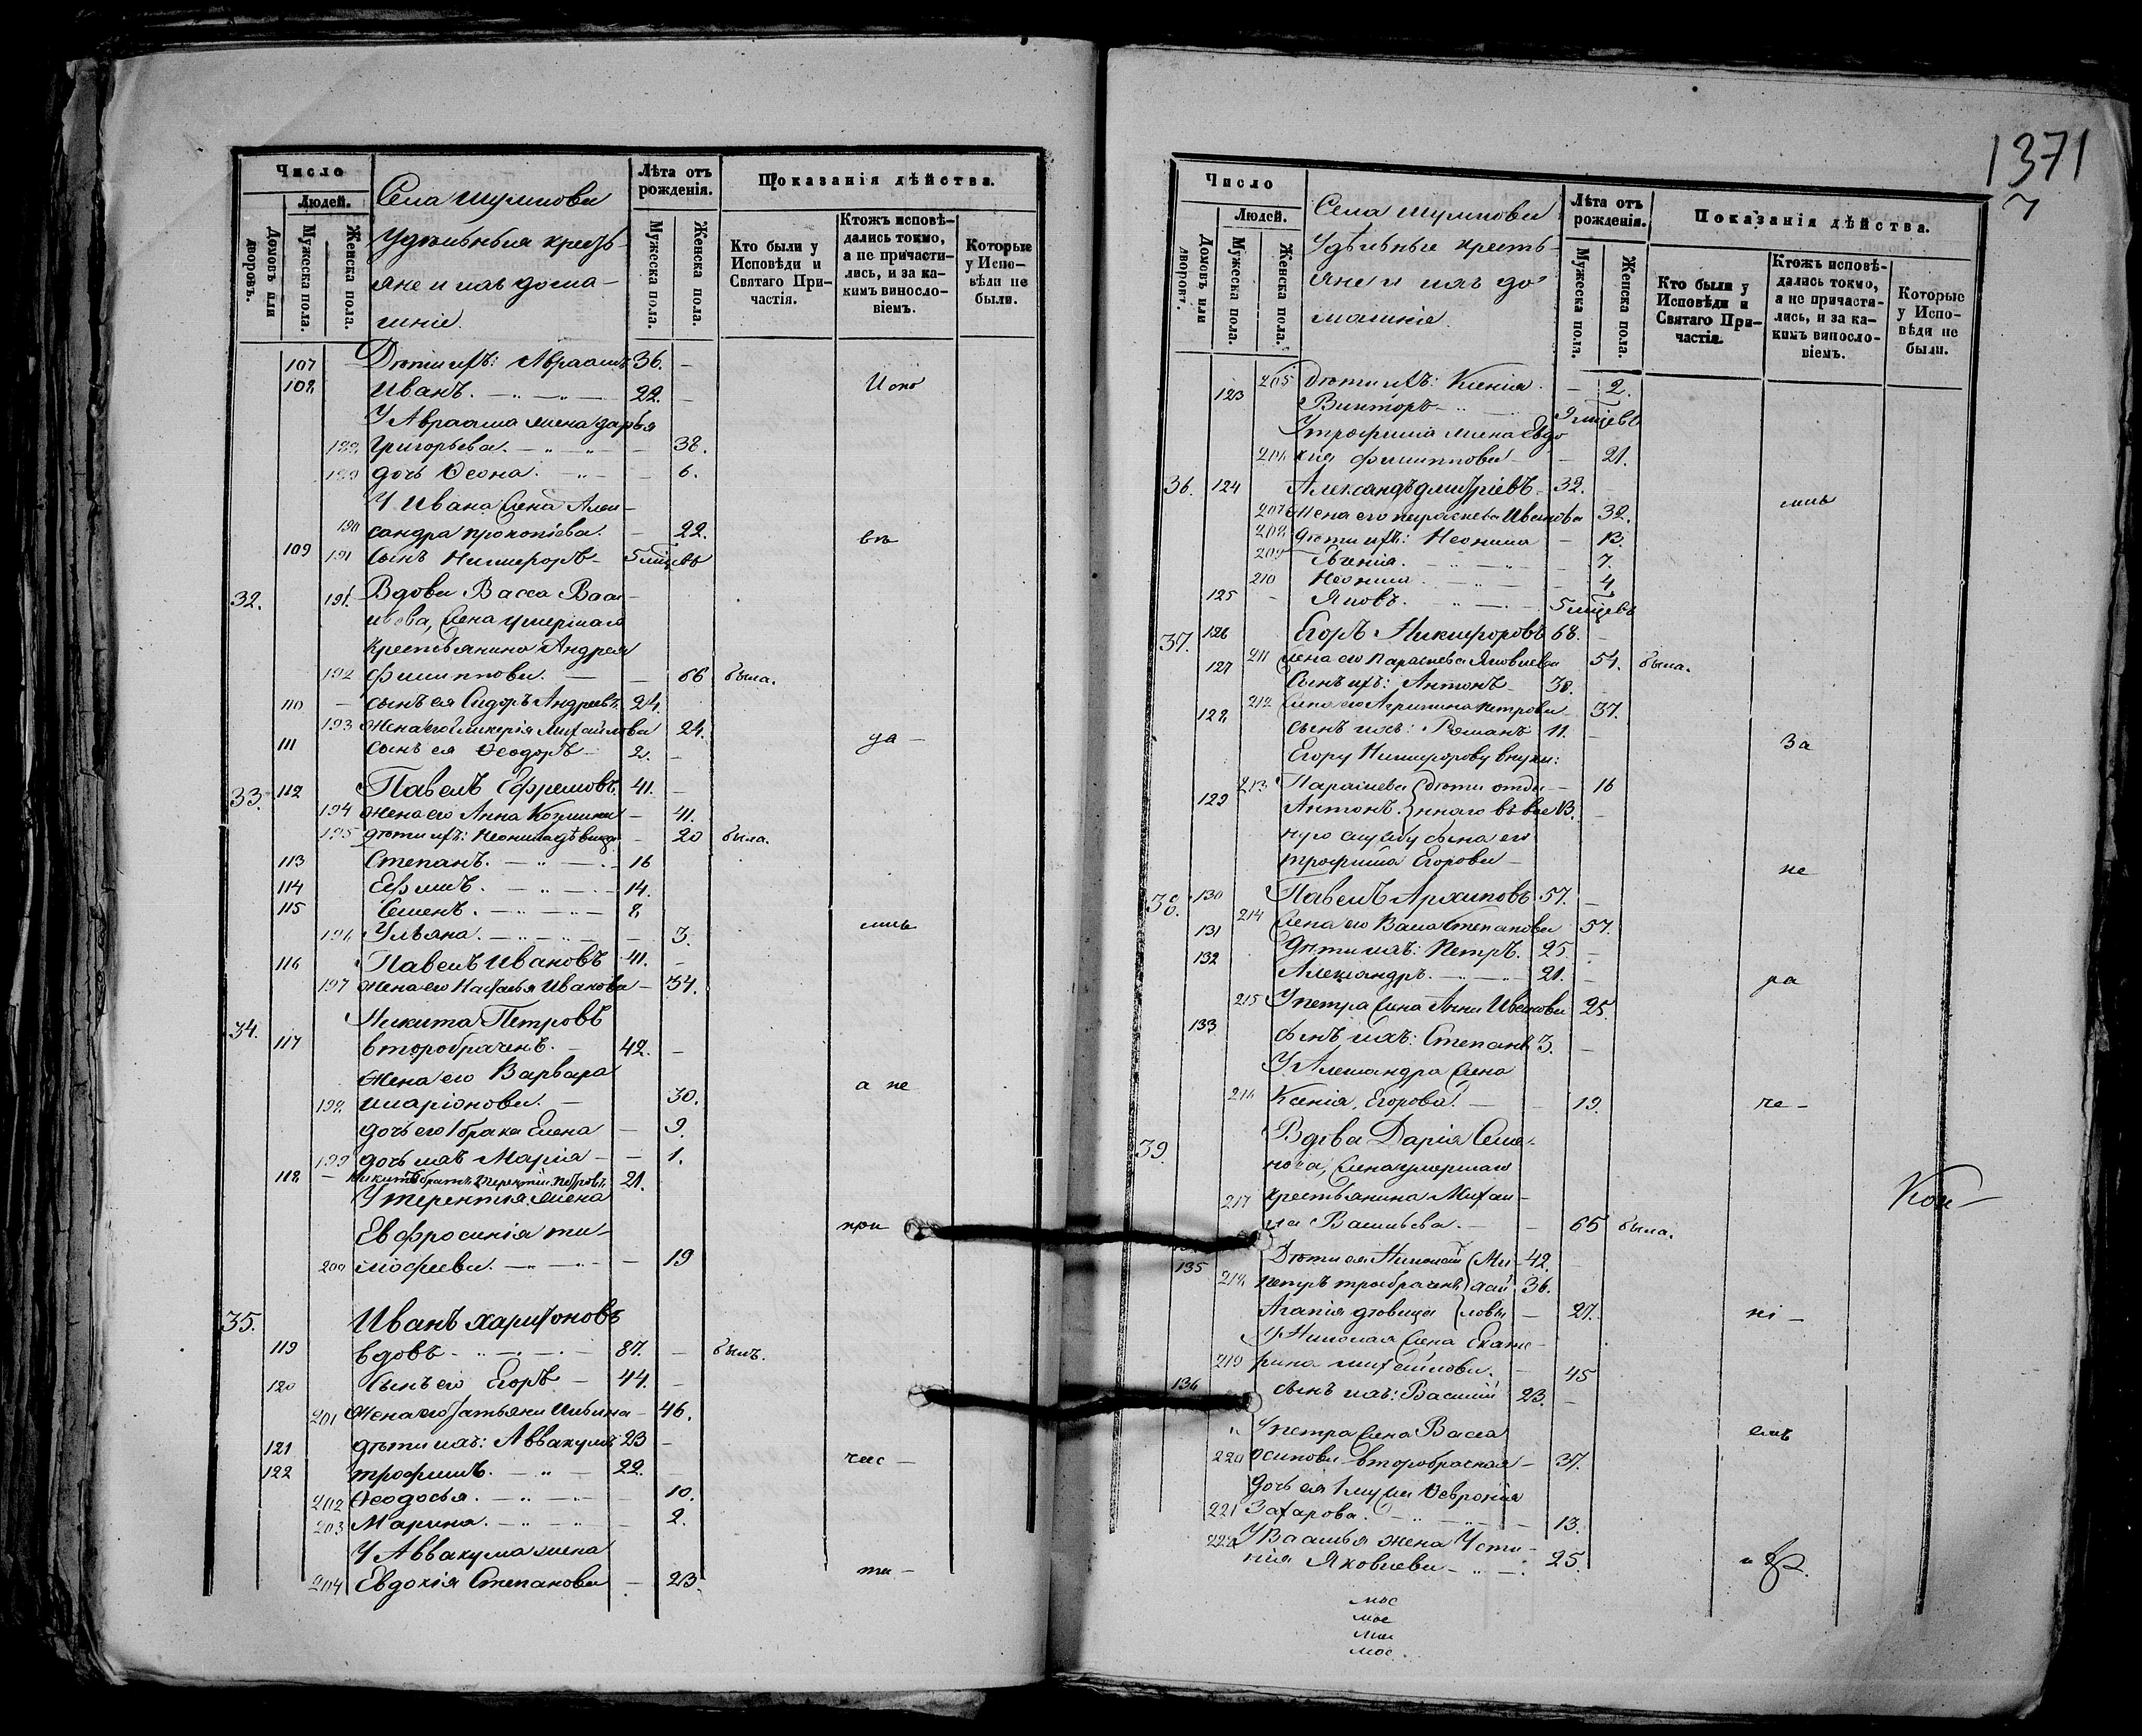 Число
Людей.
Домовъ или дворовъ.
Мужеска пола.
Женска пола.
Села Шумнова
Удѣльныя кресть-
яне и ихъ дома-
шніе.
Лѣта отъ рожденія.
Мужеска пола.
Женска пола.
Показанія дѣйства.
Кто были у Исповѣди и Святаго При-частія.
Ктожъ исповѣ-дались токмо, а не причасти-лись, и за ка-кимъ виносло-віемъ.
Которые у Испо-вѣди не были.
107 Дѣти ихъ: Авраамъ 36. -
108 Иванъ. 22. - Испо
У Авраама жена Дарья
188 Григорьева. - 38.
189 дочь Ѳеона. - 6.
У Ивана жена Алек-
190 сандра Прокопіева. - 22. вѣ
109 191 Сынъ Никифоръ - 5 мѣсцевъ
32. 191. Вдова Васса Васи-
льева, жена умершаго
крестьянина Андрея
192 Филиппова. - 66 была.
110 - сынъ ея Сидоръ Андреевъ. 24.
193 жена его Гликерія Михайлова 24.
111 сынъ ея Ѳеодоръ - 2. - да -
33. 112 Павелъ Ефремовъ. 41. -
194 жена его Анна Козмина - 41.
195 дѣти ихъ: Неонила дѣвица - 20 была.
113 Степанъ. 16
114 Ефимъ. 14.
115 Семенъ. 8
196 Ульяна. - 3. лись
116 Павелъ Ивановъ 41. -
197 жена его Наталья Иванова - 34.
34. Никита Петровъ
117 второбраченъ. - 42. -
Жена его Варвара
198 Иларіонова. - 30. а не
дочь его 1 брака Елена - 9.
199 дочь ихъ Марія - - 1.
118 - Никитѣ братъ Терентій Петровъ 21.
У Терентія жена
Евфросинія Ти- при
200 мофеева. - 19
35. Иванъ Харитоновъ
119 вдовъ - 87. - былъ.
120 Сынъ его Егоръ - 44. -
201 Жена его Татьяна Ильина - 46.
121 дѣти ихъ: Аввакумъ 23 -
122 Трофимъ. 22. час -
202 Ѳеодосья. - 10.
203 Марина. - 2.
У Аввакума жена
204 Евдокія Степанова - 23. ти -
1371
7
Число
Людей.
Домовъ или дворовъ.
Мужеска пола.
Женска пола.
Села Шумнова
Удѣльные кресть-
яне и ихъ до-
машніе.
Лѣта отъ рожденія.
Мужеска пола.
Женска пола.
Показанія дѣйства.
Кто были у Исповѣди и Святаго При-частія.
Ктожъ исповѣ-дались токмо, а не причасти-лись, и за ка-кимъ виносло-віемъ.
Которые у Испо-вѣди не были.
205 Дѣти ихъ: Ксенія. - 2.
123 Викторъ - 9 мѣсцевъ
У Трофима жена Евдо-
206 кія Филиппова - - 21.
36. 124 Александъ Дмитріевъ - 32.
207 Жена его Параскева Иванова 32. лись
208 дѣти ихъ: Неонила - 13.
209 Евгенія. - 7.
210 Неонила. - 4
125 - Яковъ. 5 мѣсцевъ
37. 126 Егоръ Никифоровъ 68. -
211 жена его Параскева Яковлева 51. была.
127 Сынъ ихъ: Антонъ - 38.
212 жена его Агрипина Петрова 37.
128 сынъ ихъ: Романъ 11. - За
Егору Никифорову внуки:
213 Параскева дѣти отда- 16
129 Антонъ. ннаго въ воен 13. -
ную службу сына его
Трофима Егорова - не
38. 130 Павелъ Архиповъ 57. -
214 жена его Васса Степанова 57.
131 Дѣти ихъ: Петръ. 25. -
132 Александръ. 21. - ра
215 У Петра жена Анна Иванова 25.
133 сынъ ихъ: Степанъ 3. -
У Александра жена
216 Ксенія Егорова. - 19. че -
39. Вдова Дарія Семе-
нова, жена умершаго
217 крестьянина Михаи-
ла Васильева. - - 65 была. Кон-
Дѣти ея Николай Ми- 42. -
135 218 Петръ троебраченъ хай 36.
Агапія дѣвица ловы - 27. ні -
У Николая жена Екате-
219 рина Михайлова. - 45
136 сынъ ихъ: Василій 23. -
У Петра жена Васса емъ
220 Осипова второбрачная - 37.
дочь ея 1 мужа Ѳеѳронія
221 Захарова. - 13.
222 У Василья жена Усти-
нія Яковлева - 25.
мос
мос
мос
мос.